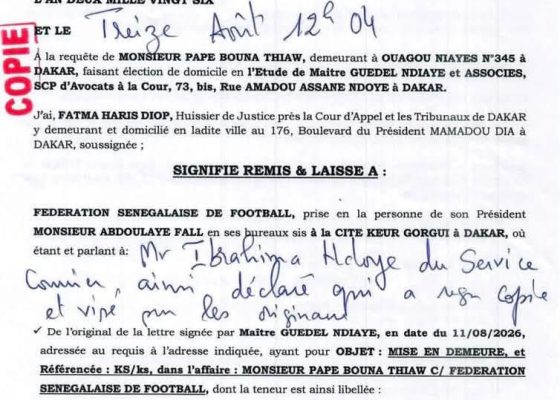 L'AN DEUX MILLE VINGT SIX
ET LE Treize Août 12h 04
COPIE
À la requête de MONSIEUR PAPE BOUNA THIAW, demeurant à OUAGOU NIAYES N°345 à
DAKAR, faisant élection de domicile en l'Etude de Maître GUEDEL NDIAYE et ASSOCIES,
SCP d'Avocats à la Cour, 73, bis, Rue AMADOU ASSANE NDOYE à DAKAR.
J'ai, FATMA HARIS DIOP, Huissier de Justice près la Cour d'Appel et les Tribunaux de DAKAR
y demeurant et domicilié en ladite ville au 176, Boulevard du Président MAMADOU DIA à
DAKAR, soussignée ;
SIGNIFIE REMIS & LAISSE A :
FEDERATION SENEGALAISE DE FOOTBALL, prise en la personne de son Président
MONSIEUR ABDOULAYE FALL en ses bureaux sis à la CITE KEUR GORGUI à DAKAR, où
étant et parlant à: Mr Ibrahima Ndoye du Service
Courrier, ainsi déclaré qui a reçu copie
et visé les
✓ De l'original de la lettre signée par Maître GUEDEL NDIAYE, en date du 11/08/2026,
adressée au requis à l'adresse indiquée, ayant pour OBJET : MISE EN DEMEURE, et
Référencée : KS/ks, dans l'affaire : MONSIEUR PAPE BOUNA THIAW C/ FEDERATION
SENEGALAISE DE FOOTBALL, dont la teneur est ainsi libellée :